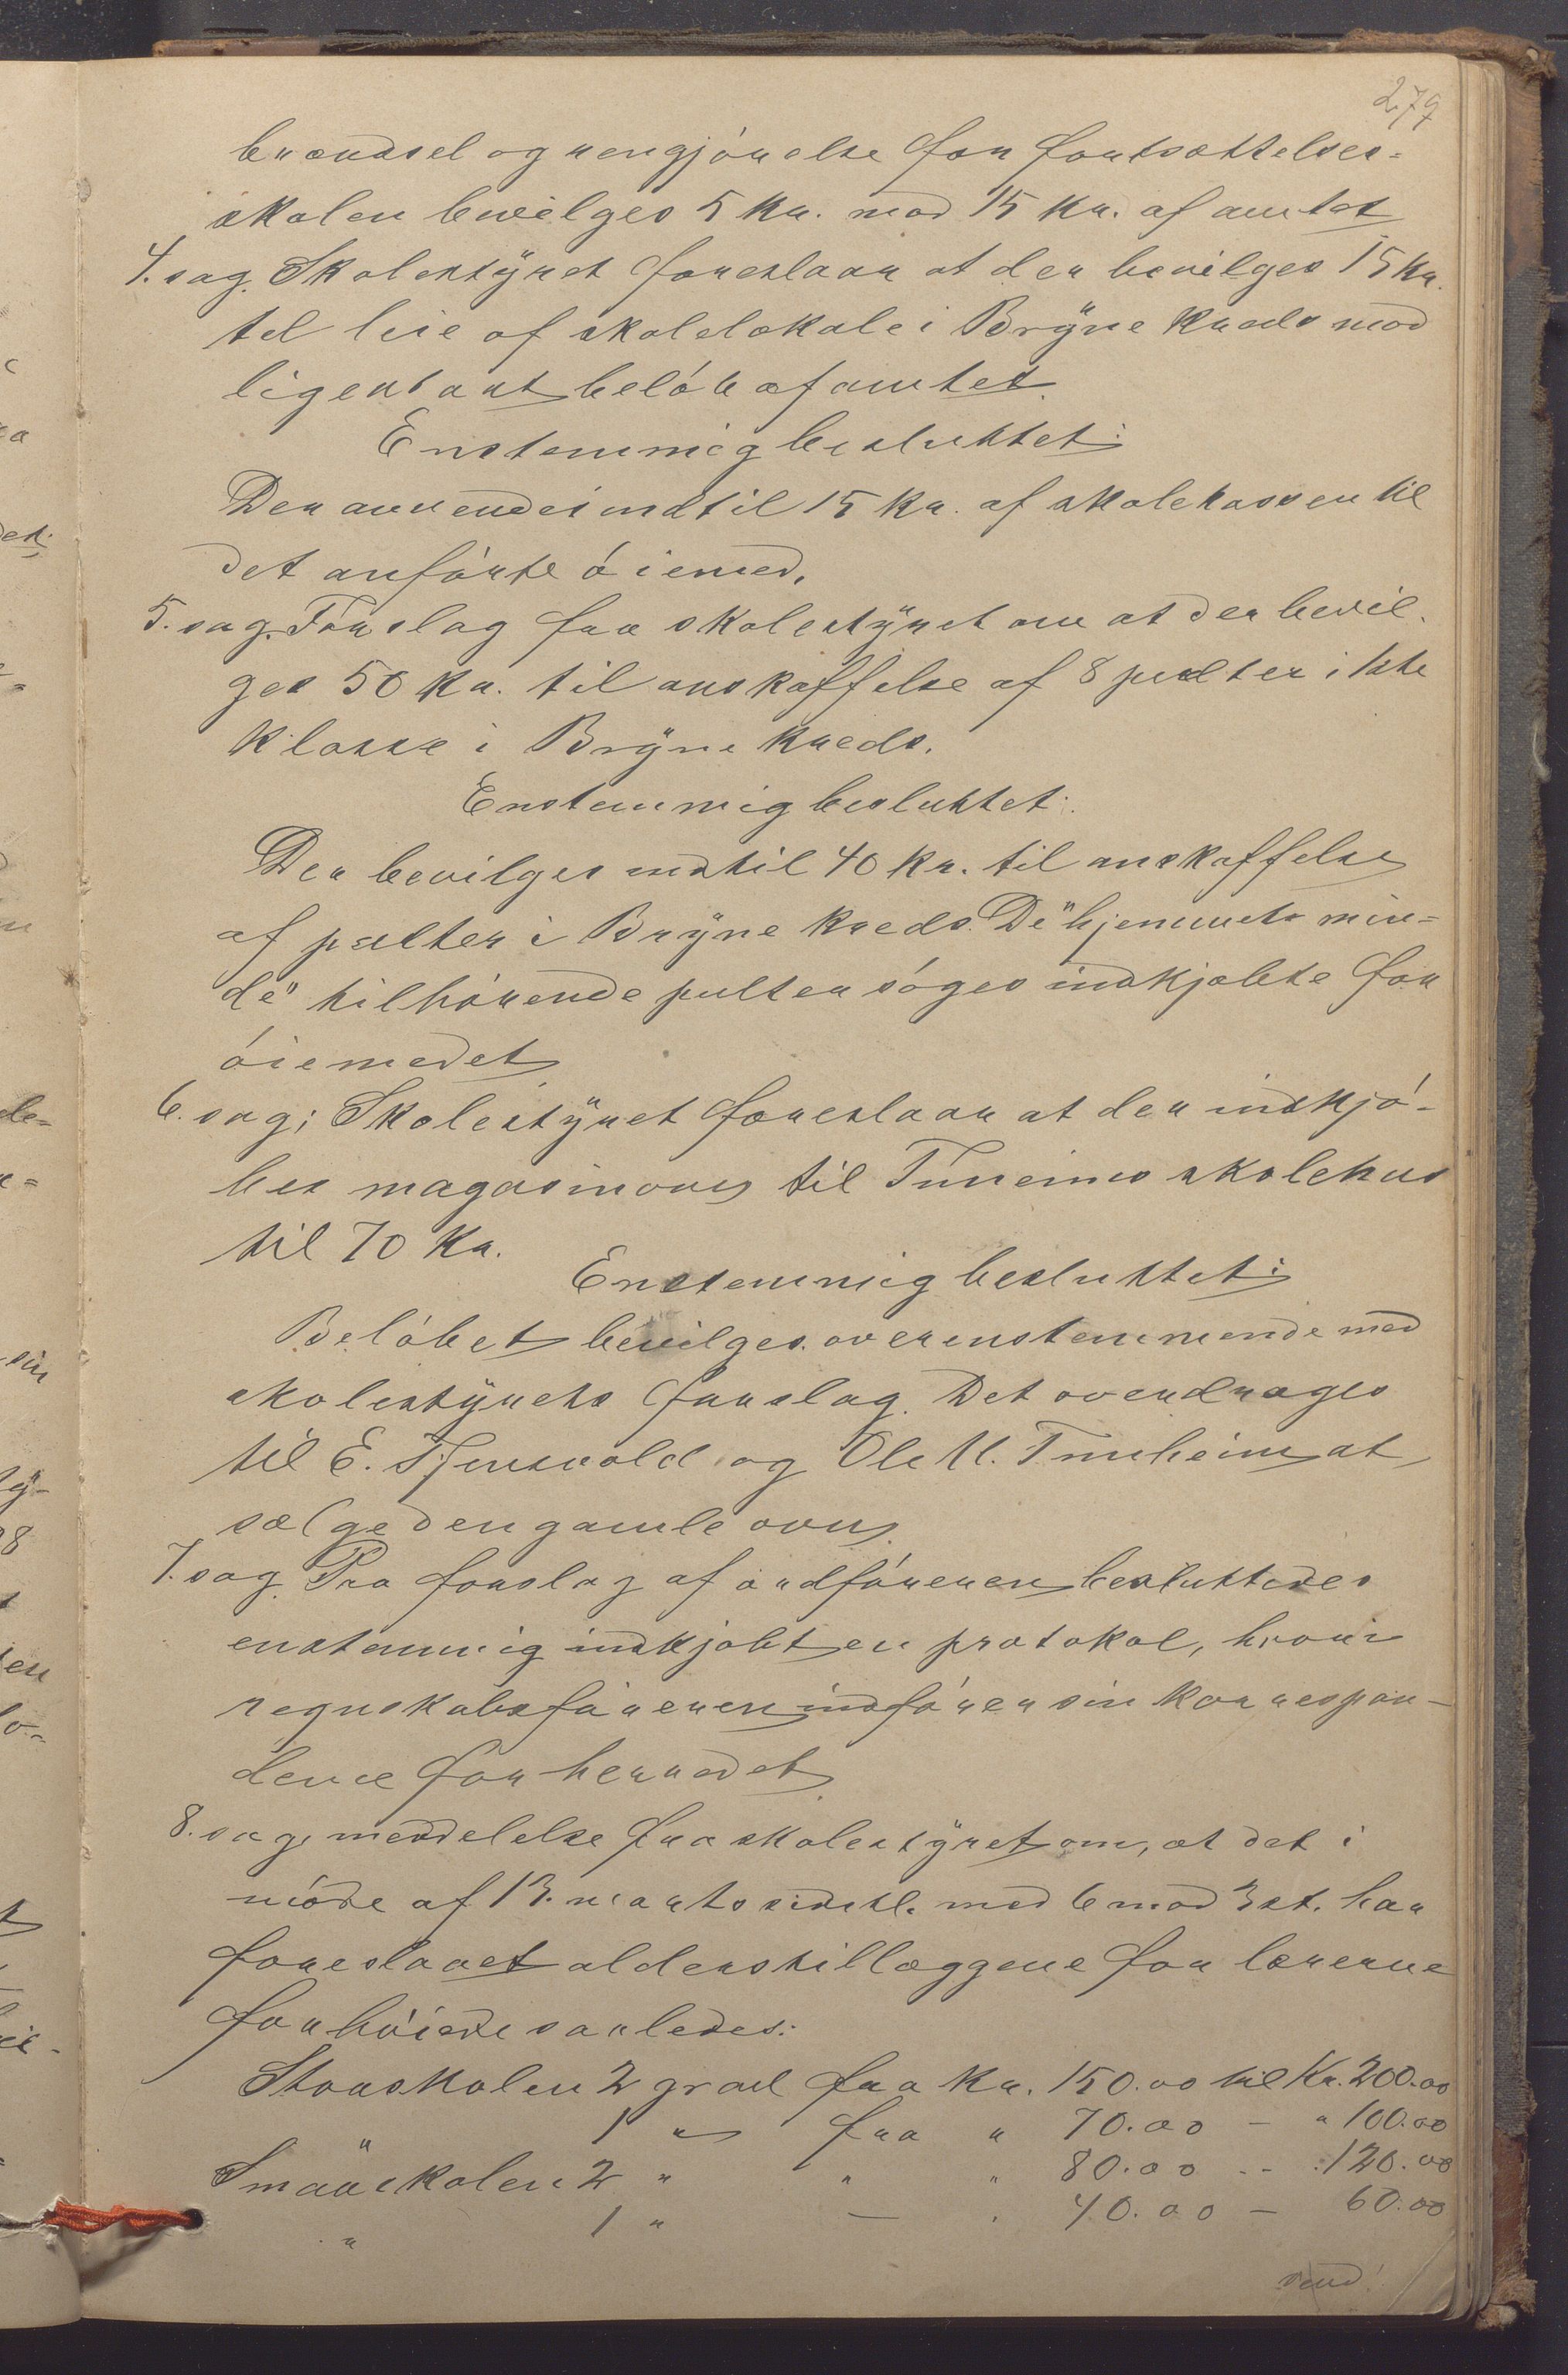 279
brændsel og rengjörelse for fortsættelses=
skolen bevilges 5 kr. mod 15 kr. af amtet
4. sag. Skolestyret foreslaar at der bevilges 15 kr.
til leie af skolelokale i Bryne kreds mod
ligestort belöb af amtet.
Enstemmig besluttet:
Der anvendes indtil 15 kr. af skolekassen til
det anförte öiemed.
5. sag. Forslag fra skolestyret om at der bevil-
ges 50 kr. til anskaffelse af 8 pulter i 1ste
klasse i Bryne kreds.
Enstemmig besluttet:
Der bevilges indtil 40 kr. til anskaffelse
af pulter i Bryne kreds. De "hjemmets min=
de" tilhörende pulter söges indkjøbte for
öiemedet
6. sag; Skolestyret foreslaar at der indkjö-
bes magasinovn til Tuneims skolehus
til 70 Kr.
Enstemmig besluttet:
Belöbet bevilges overenstemmende med
skolestyrets forslag. Det overdrages
til E. Tjensvold og Ole M. Tunheim at
sælge den gamle ovn.
7. sag. Paa forslag af ordföreren besluttedes
enstemmig indkjøbt en protokol, hvori
regnskabsföreren indförer sin korrespon-
dence for herredet.
8. sag, meddelelse fra skolestyret om, at det i
möde af 13. marts sidstl. med 6 mod 3 st. har
foreslaaet alderstillæggene for lærerne
forhöiede saaledes:
Storskolen 2 grad fra Kr. 150.00 til Kr. 200.00
" 1 " fra " 70.00 - " 100.00
Smaaskolen 2 " " " 80.00 - 120.00
" 1 " — " 40.00 - 60.00
vend!